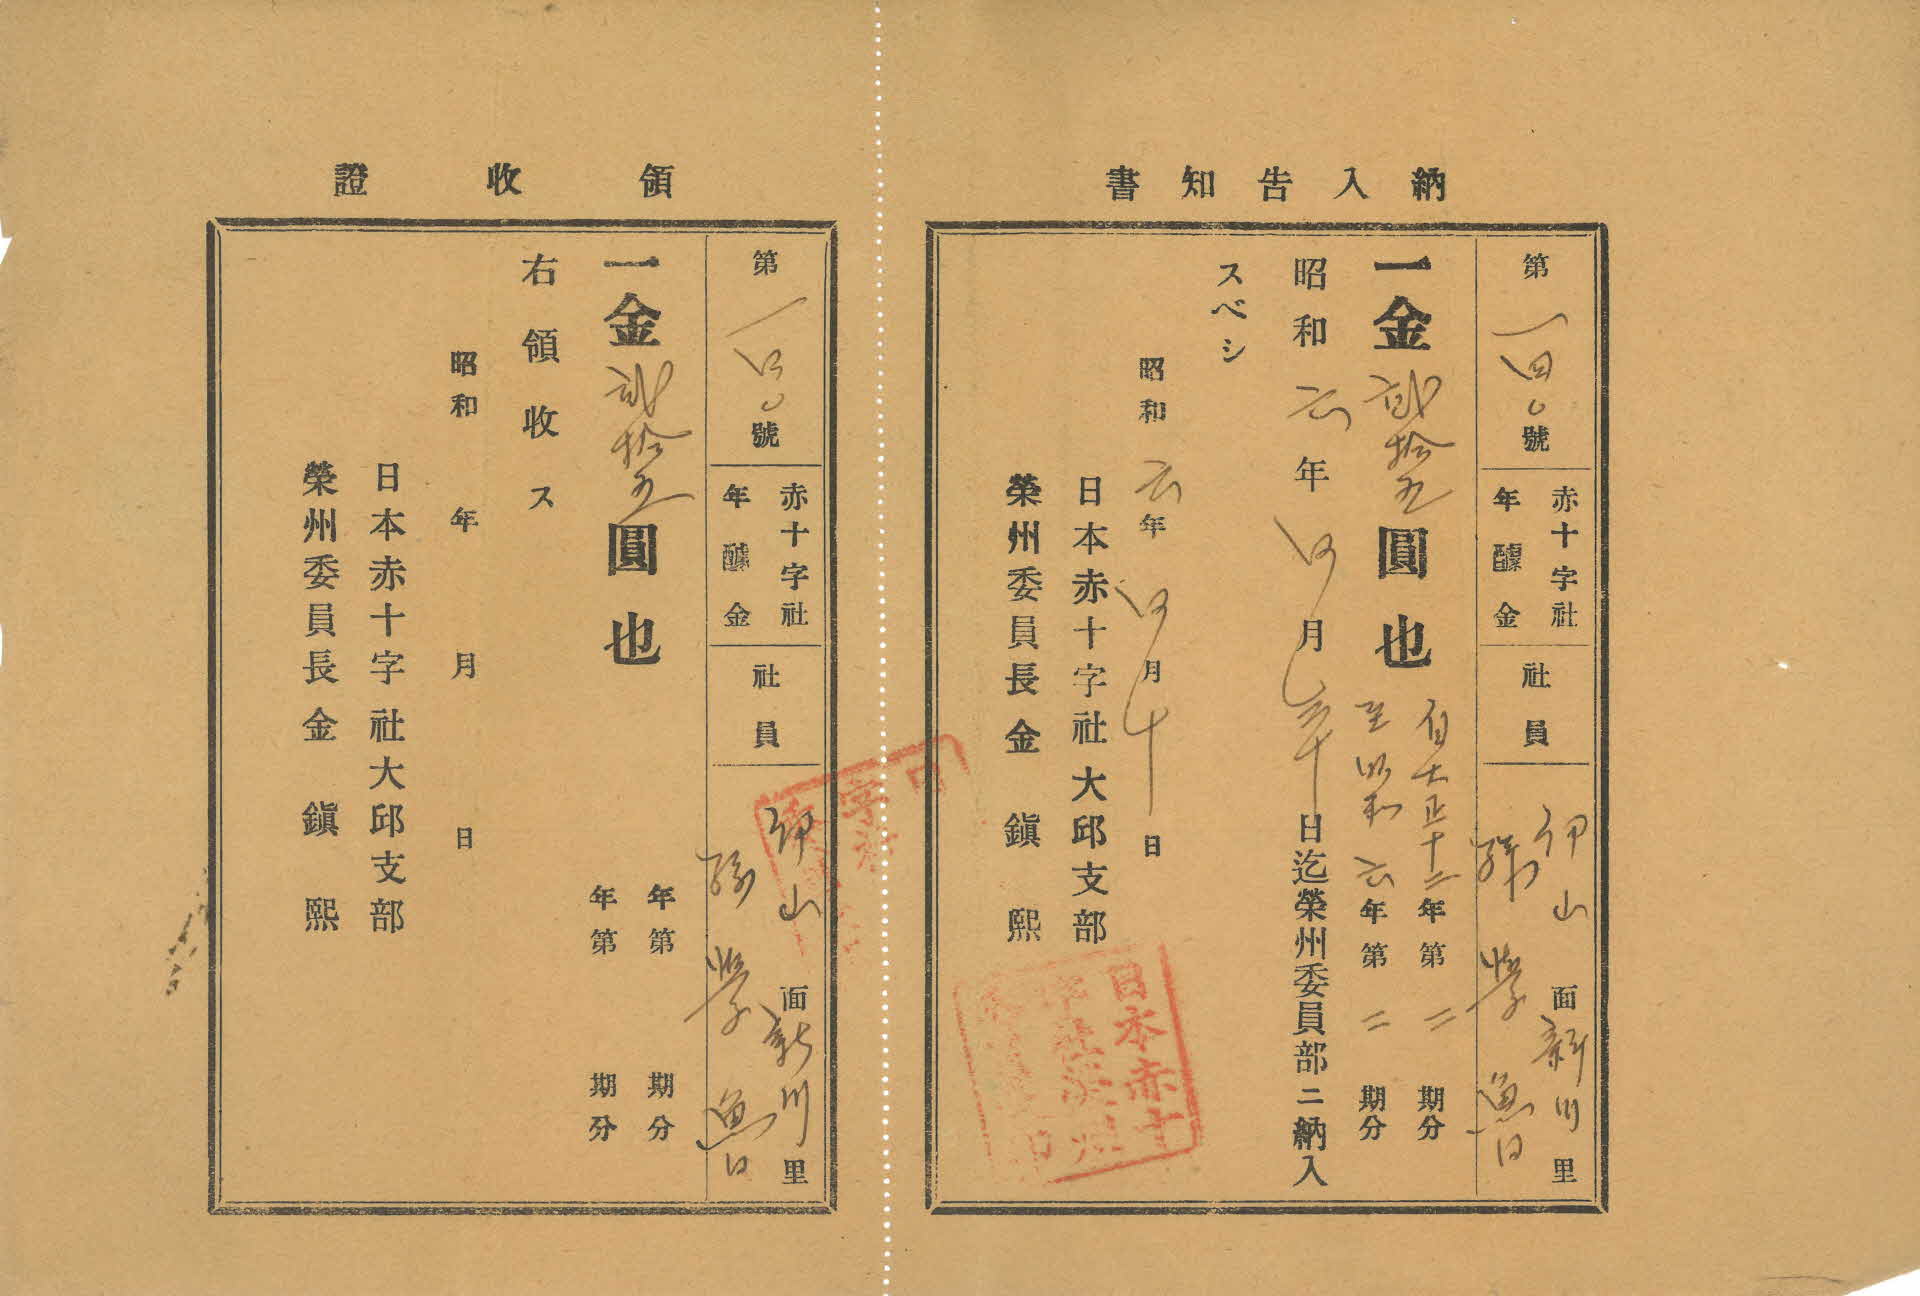 納入告知書
第一四〇號
赤十字社
年醵金
社員
伊山面新川里
孫學魯
一金貳拾五圓也
自大正十二年第二期分
至昭和六年第二期分
昭和六年四月三十日迄榮州委員部ニ納入
スベシ
昭和六年四月十日
日本赤十字社大邱支部
榮州委員長金鎭熙
領收證
第一四〇號
赤十字社
年醵金
社員
伊山面新川里
孫學魯
一金貳拾五圓也
年第 期分
年第 期分
右領收ス
昭和 年 月 日
日本赤十字社大邱支部
榮州委員長金鎭熙